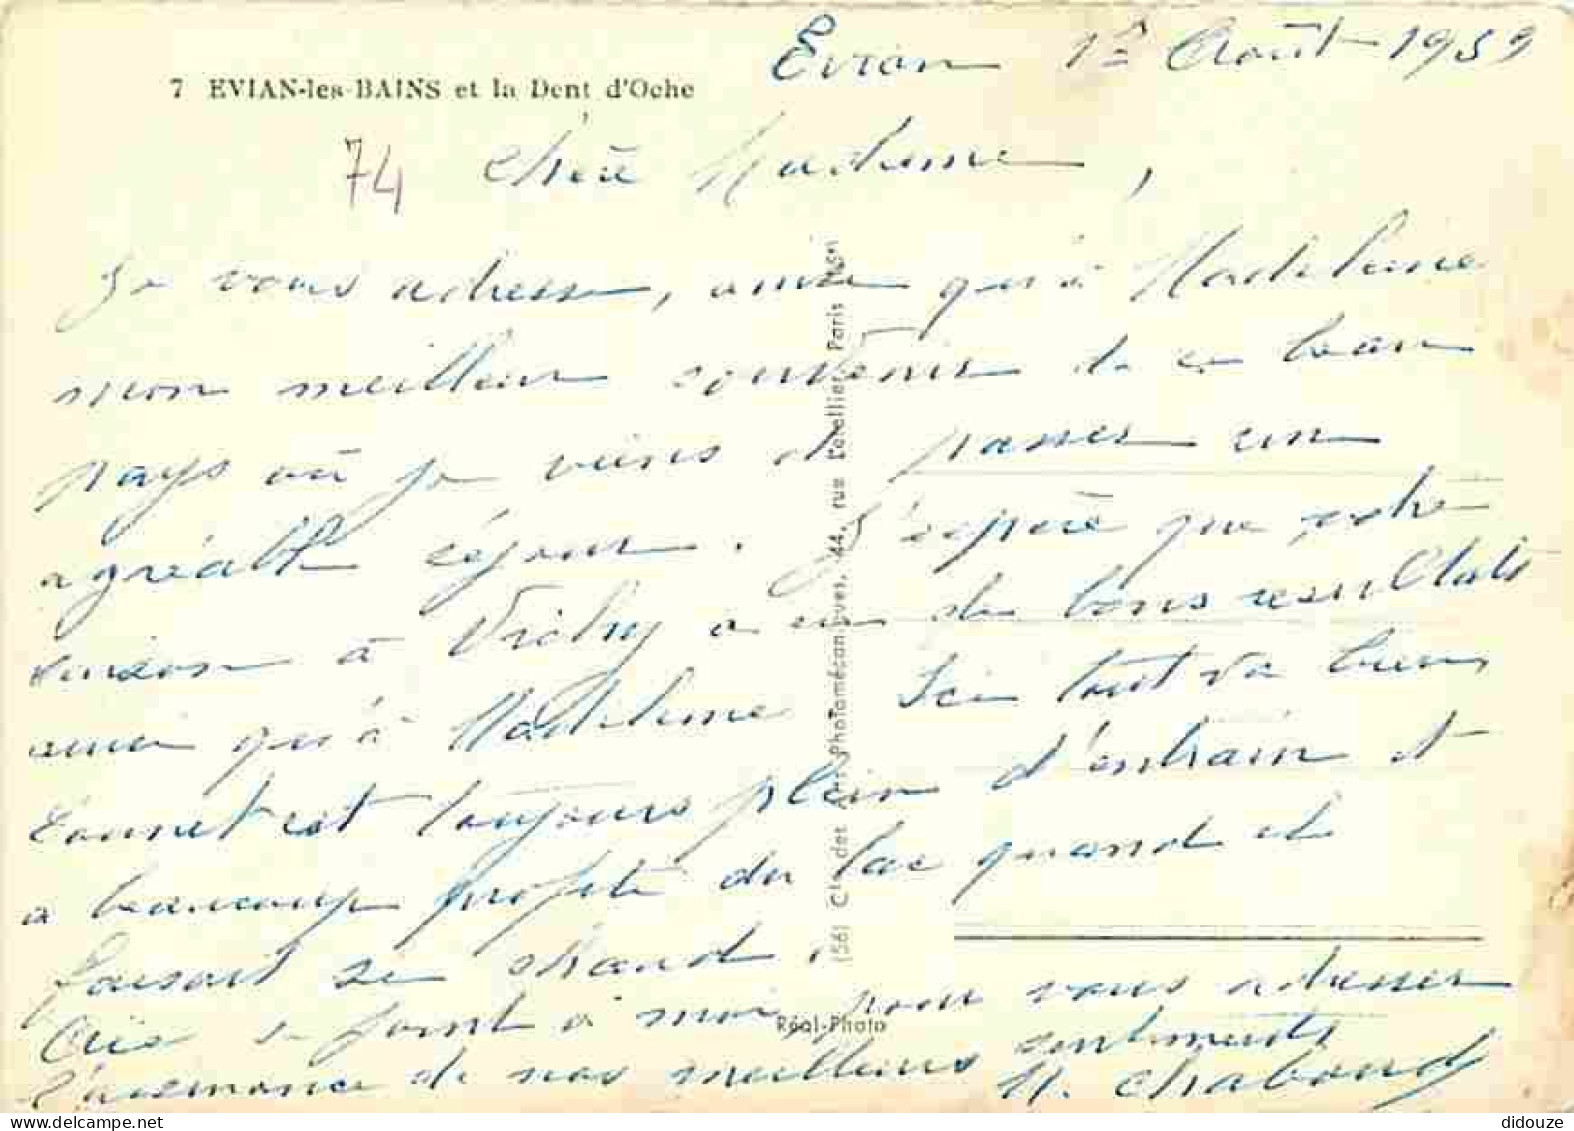 Evian 1er Août 1959
7 EVIAN-les-BAINS et la Dent d'Oche
74
Chère Madame,
Je vous adresse, ainsi qu'à Madeleine
mon meilleur souvenir de ce beau
pays où je viens de passer un
agréable séjour. J'espère que votre
saison à Vichy a eu de bons resultats
ainsi qu'à Madeleine. Ici tout va bien
est toujours plein d'entrain et
a beaucoup profité du lac quand il
faisait si chaud.
se joint à moi pour vous adresser
l'assurance de nos meilleurs sentiments
M. Chabaud
(56) Cie des Arts Photomécaniques, 44, rue Letellier Paris
Réal-Photo
didouze